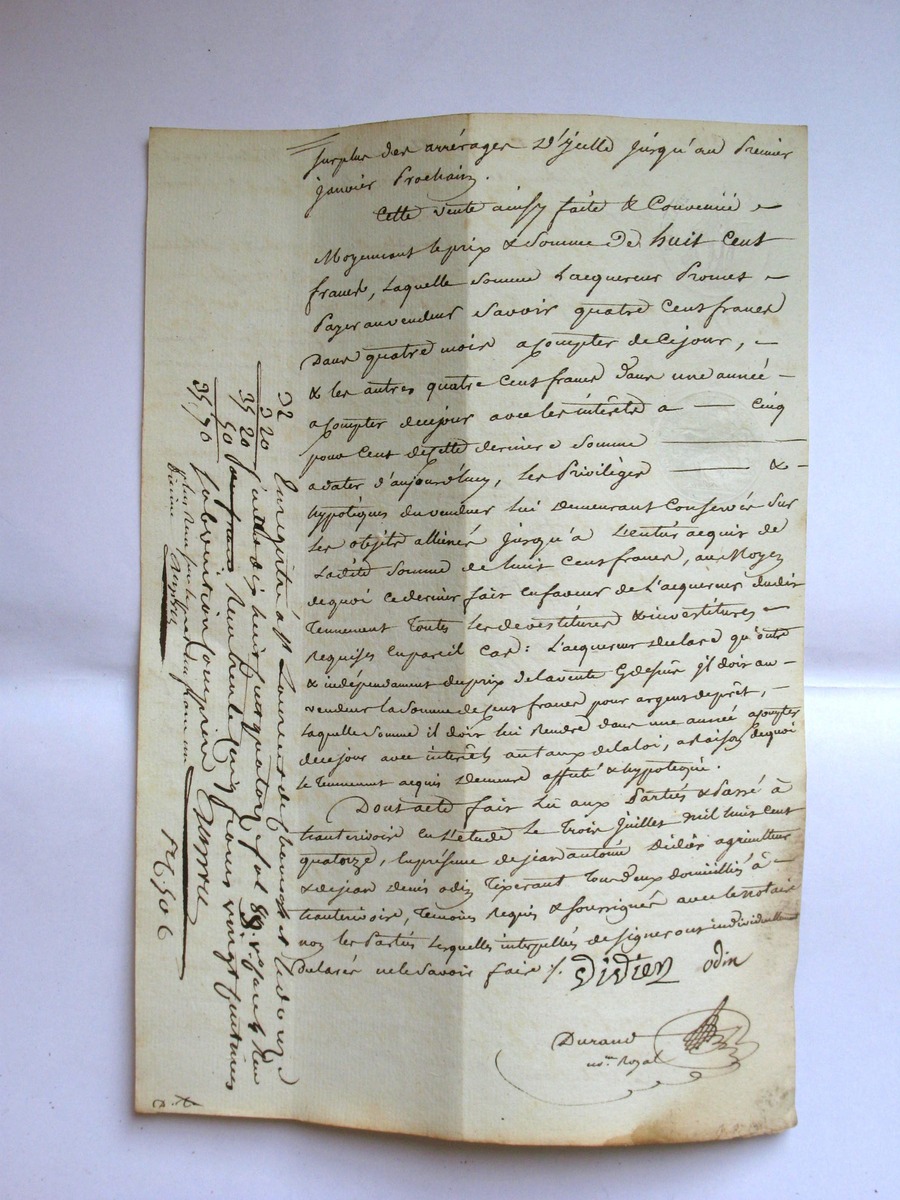 surplus des arrérages d'icelle jusqu'au Premier
janvier Prochain.
Cette vente ainsy faite & Convenüe
Moyennant le prix & Somme De huit Cent
francs, Laquelle Somme L'acquereur Promet
Payer au vendeur Savoir quatre Cent francs
Dans quatre mois a Compter de Ce jour,
& les autres quatre Cent francs Dans une année
a Compter de ce jour avec les intérêts a Cinq
pour Cent de Cette derniere Somme
a dater d'aujourd'huy, Les Privilèges &
hypotèques du vendeur Lui Demeurant Conservés Sur
Les objets alliénés jusqu'à L'entier acquis de
Ladite Somme de huit Cent francs, au Moyen
de quoi Ce dernier fait en faveur de L'acquereur dudit
Tennement Toutes Les devestitures & investitures
Requises En pareil Cas : L'acquereur Declare qu'outre
& indépendament du prix de la vente Cy dessus il doit au
vendeur la Somme de Cent francs pour argent de prêt,
laquelle Somme il doit lui Rendre dans une année a compter
de ce jour avec intérêts au taux de la loi, a Raison de quoi
Le Tennement acquis Demeure affecté & hypotequé.
Dont acte fait Lu aux Parties & Passé à
hauterivoire En L'etude Le Trois Juillet mil huit cent
quatorze, En présence de jean antoine Didier agriculteur
& de jean Denis odin Tixerant Tous Deux domiciliés à
hauterivoire, Temoins Requis & Soussignés avec le Notaire
non les Parties Lesquelles interpellées de signer ont individuellement
Declaré ne le Savoir faire /.
Didier odin
Durand
no.re Royal
Enregistré à St Laurent de Chamousset le douze
juillet dix huit cent quatorze fol 89
trente cinq francs vingt centimes
Subvention Comprise
32
3 20
35 20
50
35 70